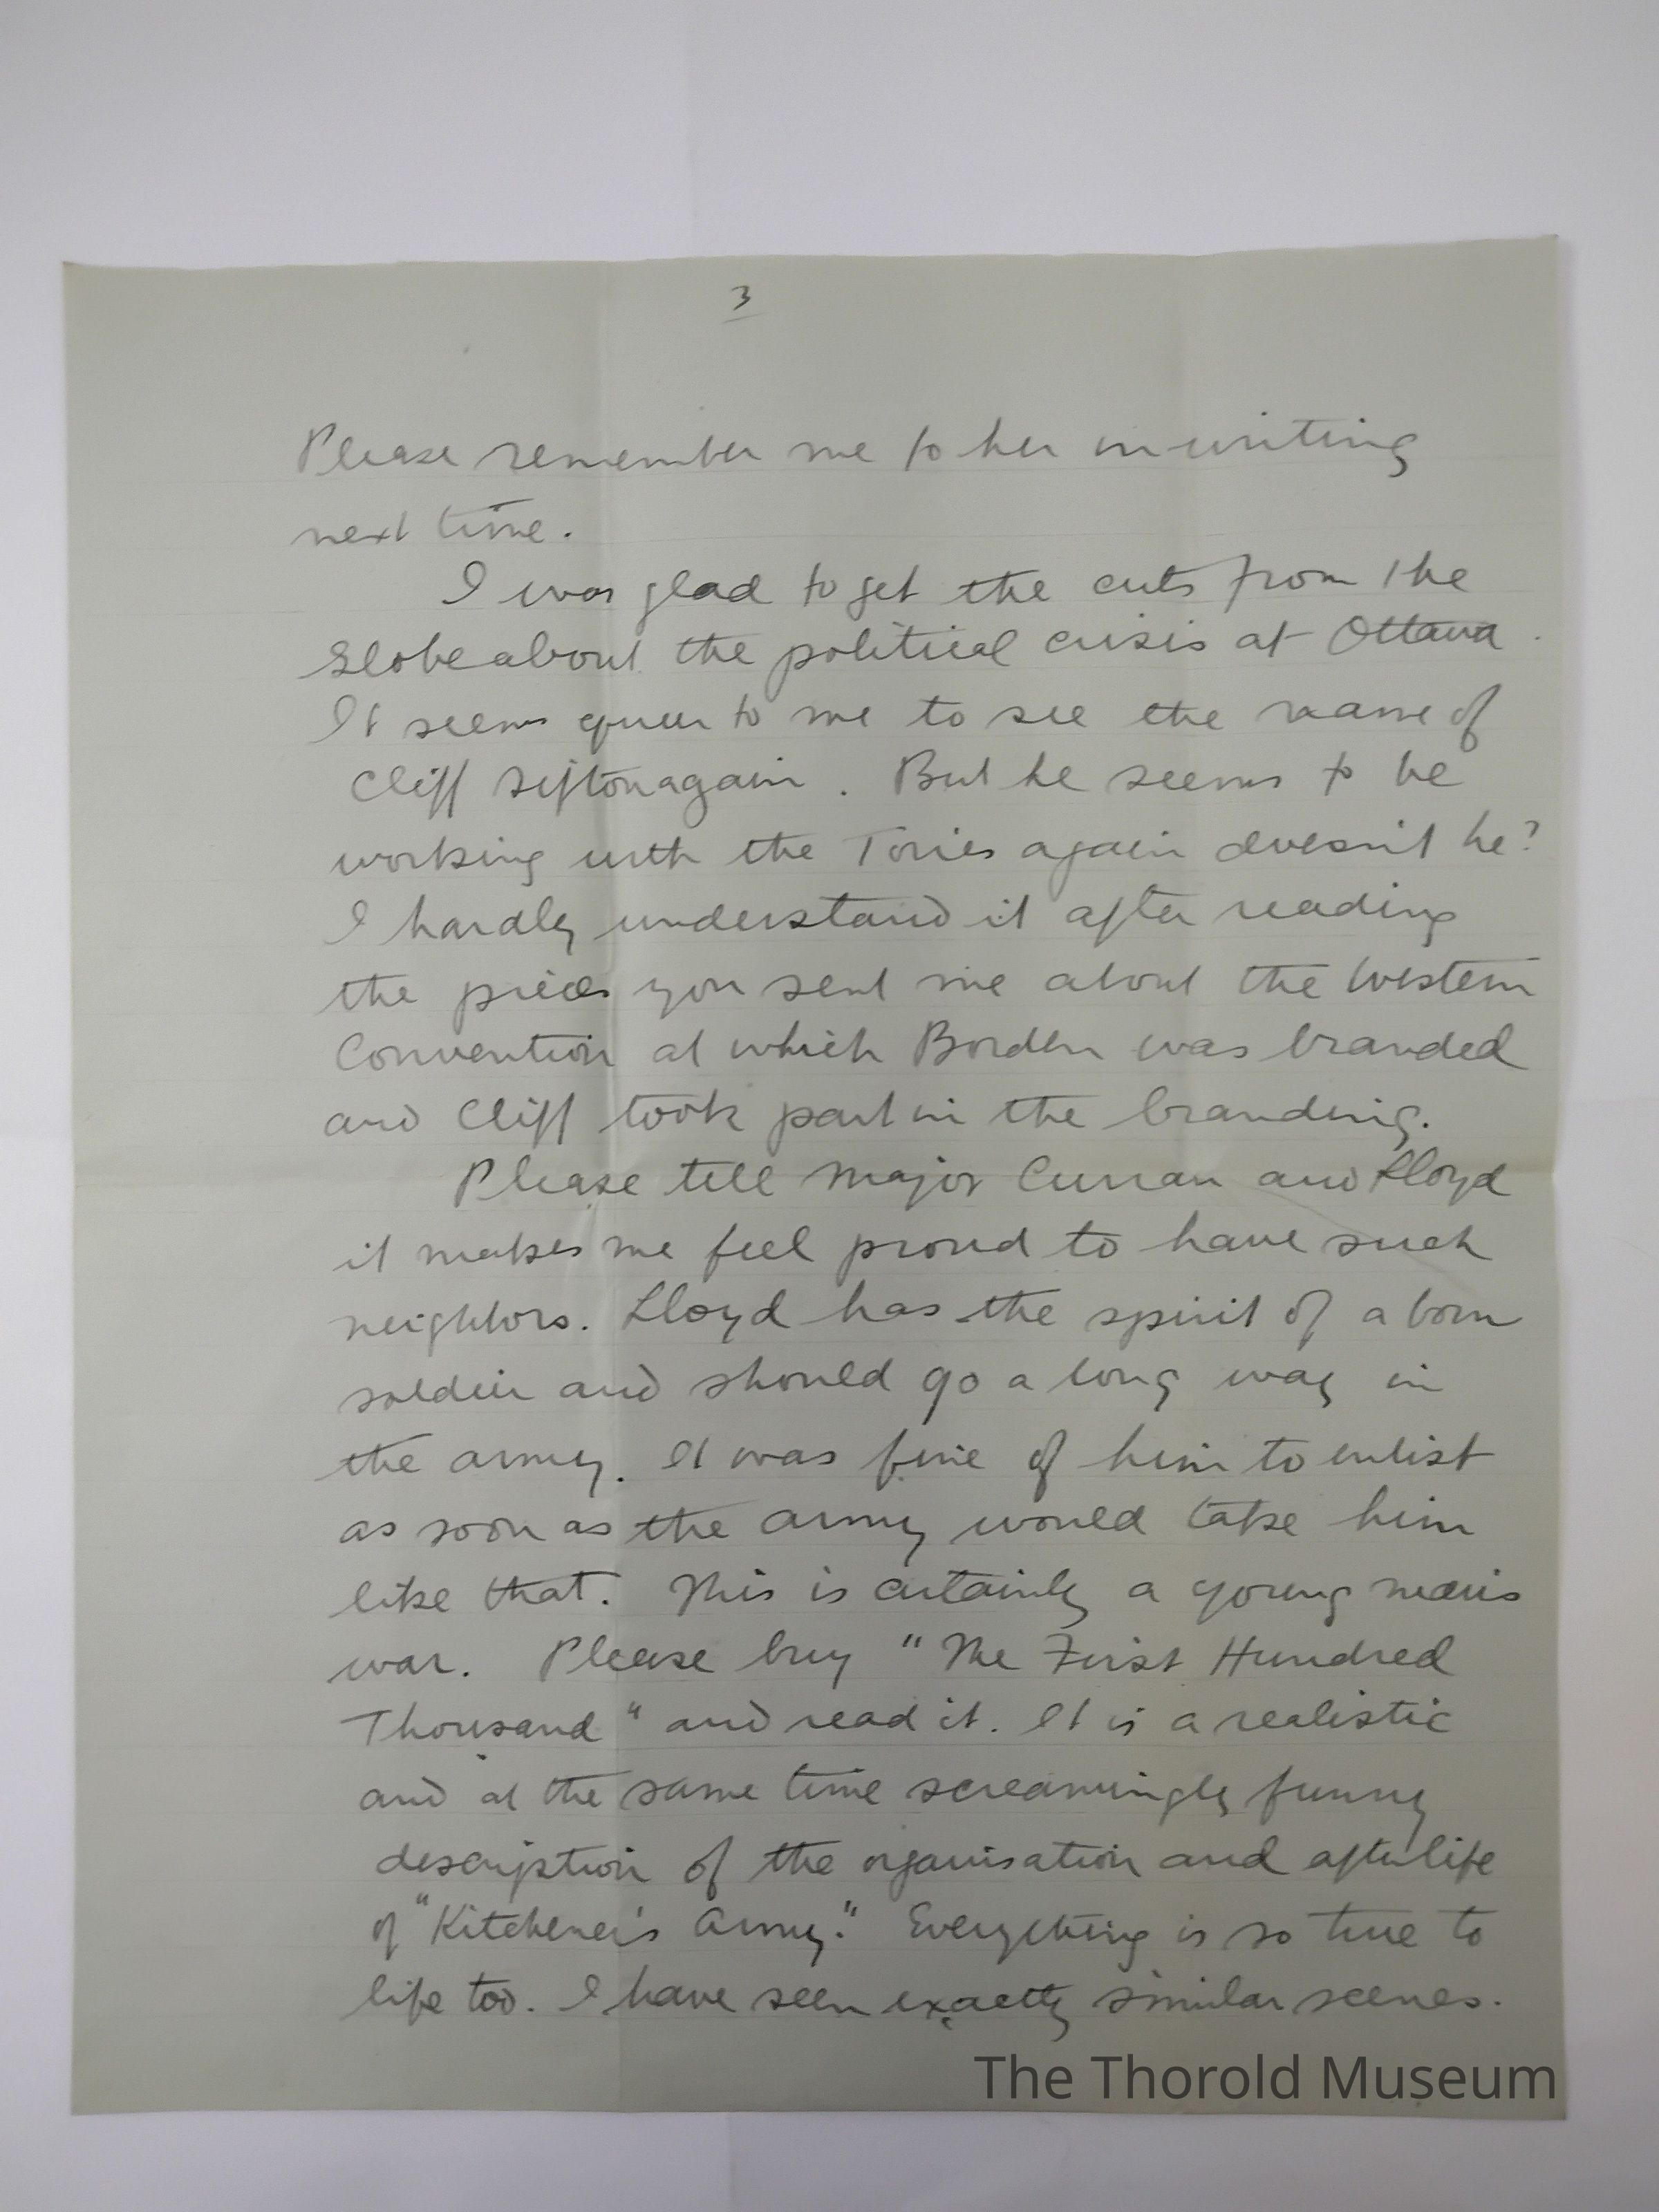 3
Please remember me to her in writing
next time.
I was glad to get the cuts from the
Globe about the political crisis at Ottawa.
It seems queer to me to see the name of
Cliff Sifton again. But he seems to be
working with the Tories again doesn't he?
I hardly understand it after reading
the pieces you sent me about the Western
Convention at which Borden was branded
and Cliff took part in the branding.
Please tell Major Curran and Lloyd
it makes me feel proud to have such
neighbors. Lloyd has the spirit of a born
soldier and should go a long way in
the army. It was fine of him to enlist
as soon as the army would take him
like that. This is certainly a young man's
war. Please buy "The First Hundred
Thousand" and read it. It is a realistic
and at the same time screamingly funny
description of the organisation and after life
of "Kitchener's Army." Everything is so true to
life too. I have seen exactly similar scenes.
The Thorold Museum